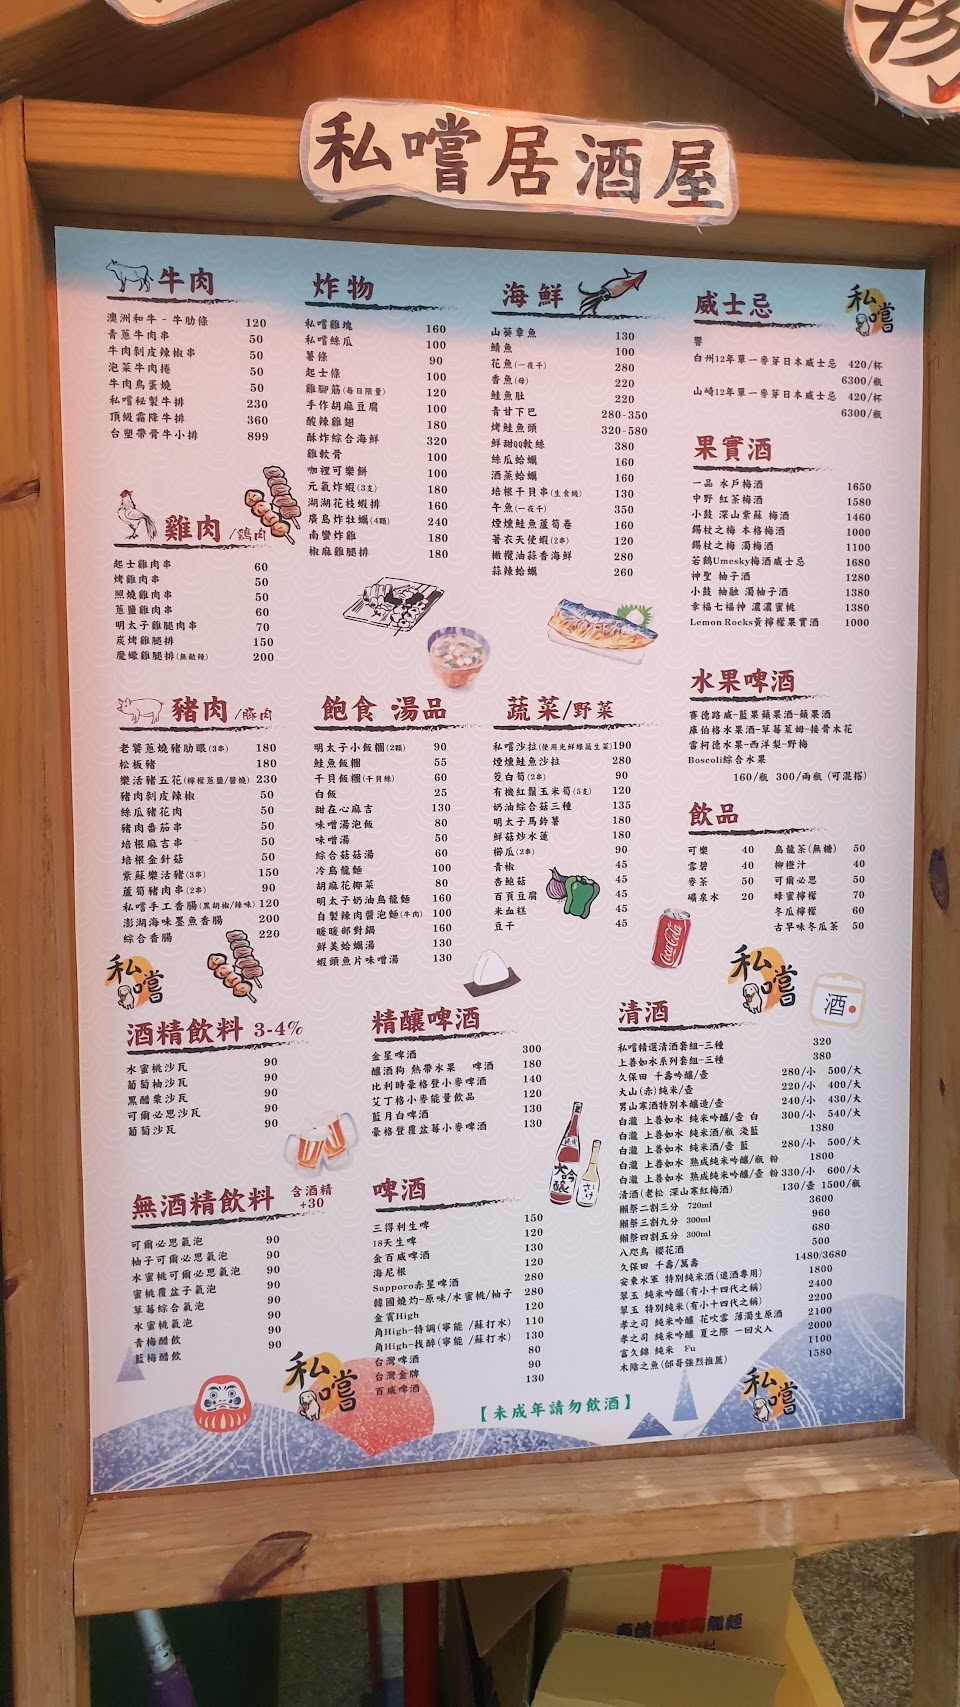 私嚐居酒屋
牛肉
澳洲和牛-牛肋條 120
青蔥牛肉串 50
牛肉剝皮辣椒串 50
泡菜牛肉捲 50
牛肉鳥蛋燒 50
私嚐秘製牛排 230
頂級霜降牛排 360
台塑帶骨牛小排 899
雞肉/鶏肉
起士雞肉串 60
烤雞肉串 50
照燒雞肉串 50
蔥鹽雞肉串 60
明太子雞腿肉串 70
炭烤雞腿排 150
魔蠍雞腿排(無敵辣) 200
豬肉/豚肉
老饕蔥燒豬肋眼(3串) 180
松板豬 180
樂活豬五花(檸檬蔥鹽/醬燒) 230
豬肉剝皮辣椒 50
絲瓜豬花肉 50
豬肉番茄串 50
培根麻吉串 50
培根金針菇 50
紫蘇樂活豬(3串) 150
蘆筍豬肉串(2串) 90
私嚐手工香腸(黑胡椒/辣味) 120
澎湖海味墨魚香腸 200
綜合香腸 220
炸物
私嚐雞塊 160
私嚐絲瓜 100
薯條 90
起士條 100
雞腳筋(每日限量) 120
手作胡麻豆腐 100
酸辣雞翅 180
酥炸綜合海鮮 320
雞軟骨 100
咖哩可樂餅 100
元氣炸蝦(3支) 180
湖湖花枝蝦排 160
廣島炸牡蠣(4顆) 240
南蠻炸雞 180
椒麻雞腿排 180
飽食 湯品
明太子小飯糰(2顆) 90
鮭魚飯糰 55
干貝飯糰(干貝絲) 60
白飯 25
甜在心麻吉 130
味噌湯泡飯 80
味噌湯 50
綜合菇菇湯 60
冷烏龍麵 100
胡麻花椰菜 80
明太子奶油烏龍麵 160
自製辣肉醬泡麵(牛肉) 100
暖暖部對鍋 160
鮮美蛤蠣湯 130
蝦頭魚片味噌湯 130
海鮮
山葵章魚 130
鯖魚 100
花魚(一夜干) 280
香魚(母) 220
鮭魚肚 220
青甘下巴 280-350
烤鮭魚頭 320-580
鮮甜QQ軟絲 380
絲瓜蛤蠣 160
酒蒸蛤蠣 160
培根干貝串(生食級) 130
午魚(一夜干) 350
煙燻鮭魚蘆筍卷 160
著衣天使蝦(2串) 120
橄欖油蒜香海鮮 280
蒜辣蛤蠣 260
蔬菜/野菜
私嚐沙拉(使用光鮮綠蔬生菜) 190
煙燻鮭魚沙拉 280
筊白筍(2串) 90
有機紅鬚玉米筍(5支) 120
奶油綜合菇三種 135
明太子馬鈴薯 180
鮮菇炒水蓮 180
櫛瓜(2串) 90
青椒 45
杏鮑菇 45
百頁豆腐 45
米血糕 45
豆干 45
威士忌
私嚐
響
白州12年單一麥芽日本威士忌 420/杯
6300/瓶
山崎12年單一麥芽日本威士忌 420/杯
6300/瓶
果實酒
一品 水戶梅酒 1650
中野 紅茶梅酒 1580
小鼓 深山紫蘇 梅酒 1460
錫杖之梅 本格梅酒 1000
錫杖之梅 濁梅酒 1100
若鶴Umesky梅酒威士忌 1680
神聖 柚子酒 1280
小鼓 柚融 濁柚子酒 1380
幸福七福神 濃濃蜜桃 1380
Lemon Rocks黃檸檬果實酒 1000
水果啤酒
賽德路威-藍果蘋果酒-蘋果酒
庫伯格水果酒-草莓萊姆-接骨木花
雷柯德水果-西洋梨-野梅
Boscoli綜合水果
160/瓶 300/兩瓶 (可混搭)
飲品
可樂 40
雪碧 40
麥茶 50
礦泉水 20
烏龍茶(無糖) 50
柳橙汁 40
可爾必思 50
蜂蜜檸檬 70
冬瓜檸檬 60
古早味冬瓜茶 50
Coca-Cola
私嚐
私嚐
酒
酒精飲料 3-4%
水蜜桃沙瓦 90
葡萄柚沙瓦 90
黑醋栗沙瓦 90
可爾必思沙瓦 90
葡萄沙瓦 90
無酒精飲料 含酒精
+30
可爾必思氣泡 90
柚子可爾必思氣泡 90
水蜜桃可爾必思氣泡 90
蜜桃覆盆子氣泡 90
草莓綜合氣泡 90
水蜜桃氣泡 90
青梅醋飲 90
藍梅醋飲 90
精釀啤酒
金星啤酒 300
釀酒狗 熱帶水果 啤酒 180
比利時豪格登小麥啤酒 140
艾丁格小麥能量飲品 120
藍月白啤酒 130
豪格登覆盆莓小麥啤酒 130
啤酒
三得利生啤 150
18天生啤 120
金百威啤酒 130
海尼根 120
Sapporo赤星啤酒 280
韓國燒灼-原味/水蜜桃/柚子 280
金賓High 120
角High-特調(寧能 /蘇打水) 110
角High-找醉(寧能 /蘇打水) 130
台灣啤酒 80
台灣金牌 90
百威啤酒 130
清酒
私嚐精選清酒套組-三種 320
上善如水系列套組-三種 380
久保田 千壽吟釀/壺 280/小 500/大
大山(赤)純米/壺 220/小 400/大
男山寒酒特別本釀造/壺 240/小 430/大
白瀧 上善如水 純米吟釀/壺 白 300/小 540/大
白瀧 上善如水 純米酒/瓶 淺藍 1380
白瀧 上善如水 純米酒/壺 藍 280/小 500/大
白瀧 上善如水 熟成純米吟釀/瓶 粉 1800
白瀧 上善如水 熟成純米吟釀/壺 粉 330/小 600/大
清酒(老松 深山寒紅梅酒) 130/壺 1500/瓶
獺祭二割三分 720ml 3600
獺祭三割九分 300ml 960
獺祭四割五分 300ml 680
八咫烏 櫻花酒 500
久保田 千壽/萬壽 1480/3680
安東水軍 特別純米酒(追酒專用) 1800
翠玉 純米吟釀(有小十四代之稱) 2400
翠玉 特別純米(有小十四代之稱) 2200
孝之司 純米吟釀 花吹雪 薄濁生原酒 2100
孝之司 純米吟釀 夏之際 一回火入 2000
富久錦 純米 Fu 1100
木陰之魚(邰哥強烈推薦) 1580
私嚐
私嚐
【未成年請勿飲酒】